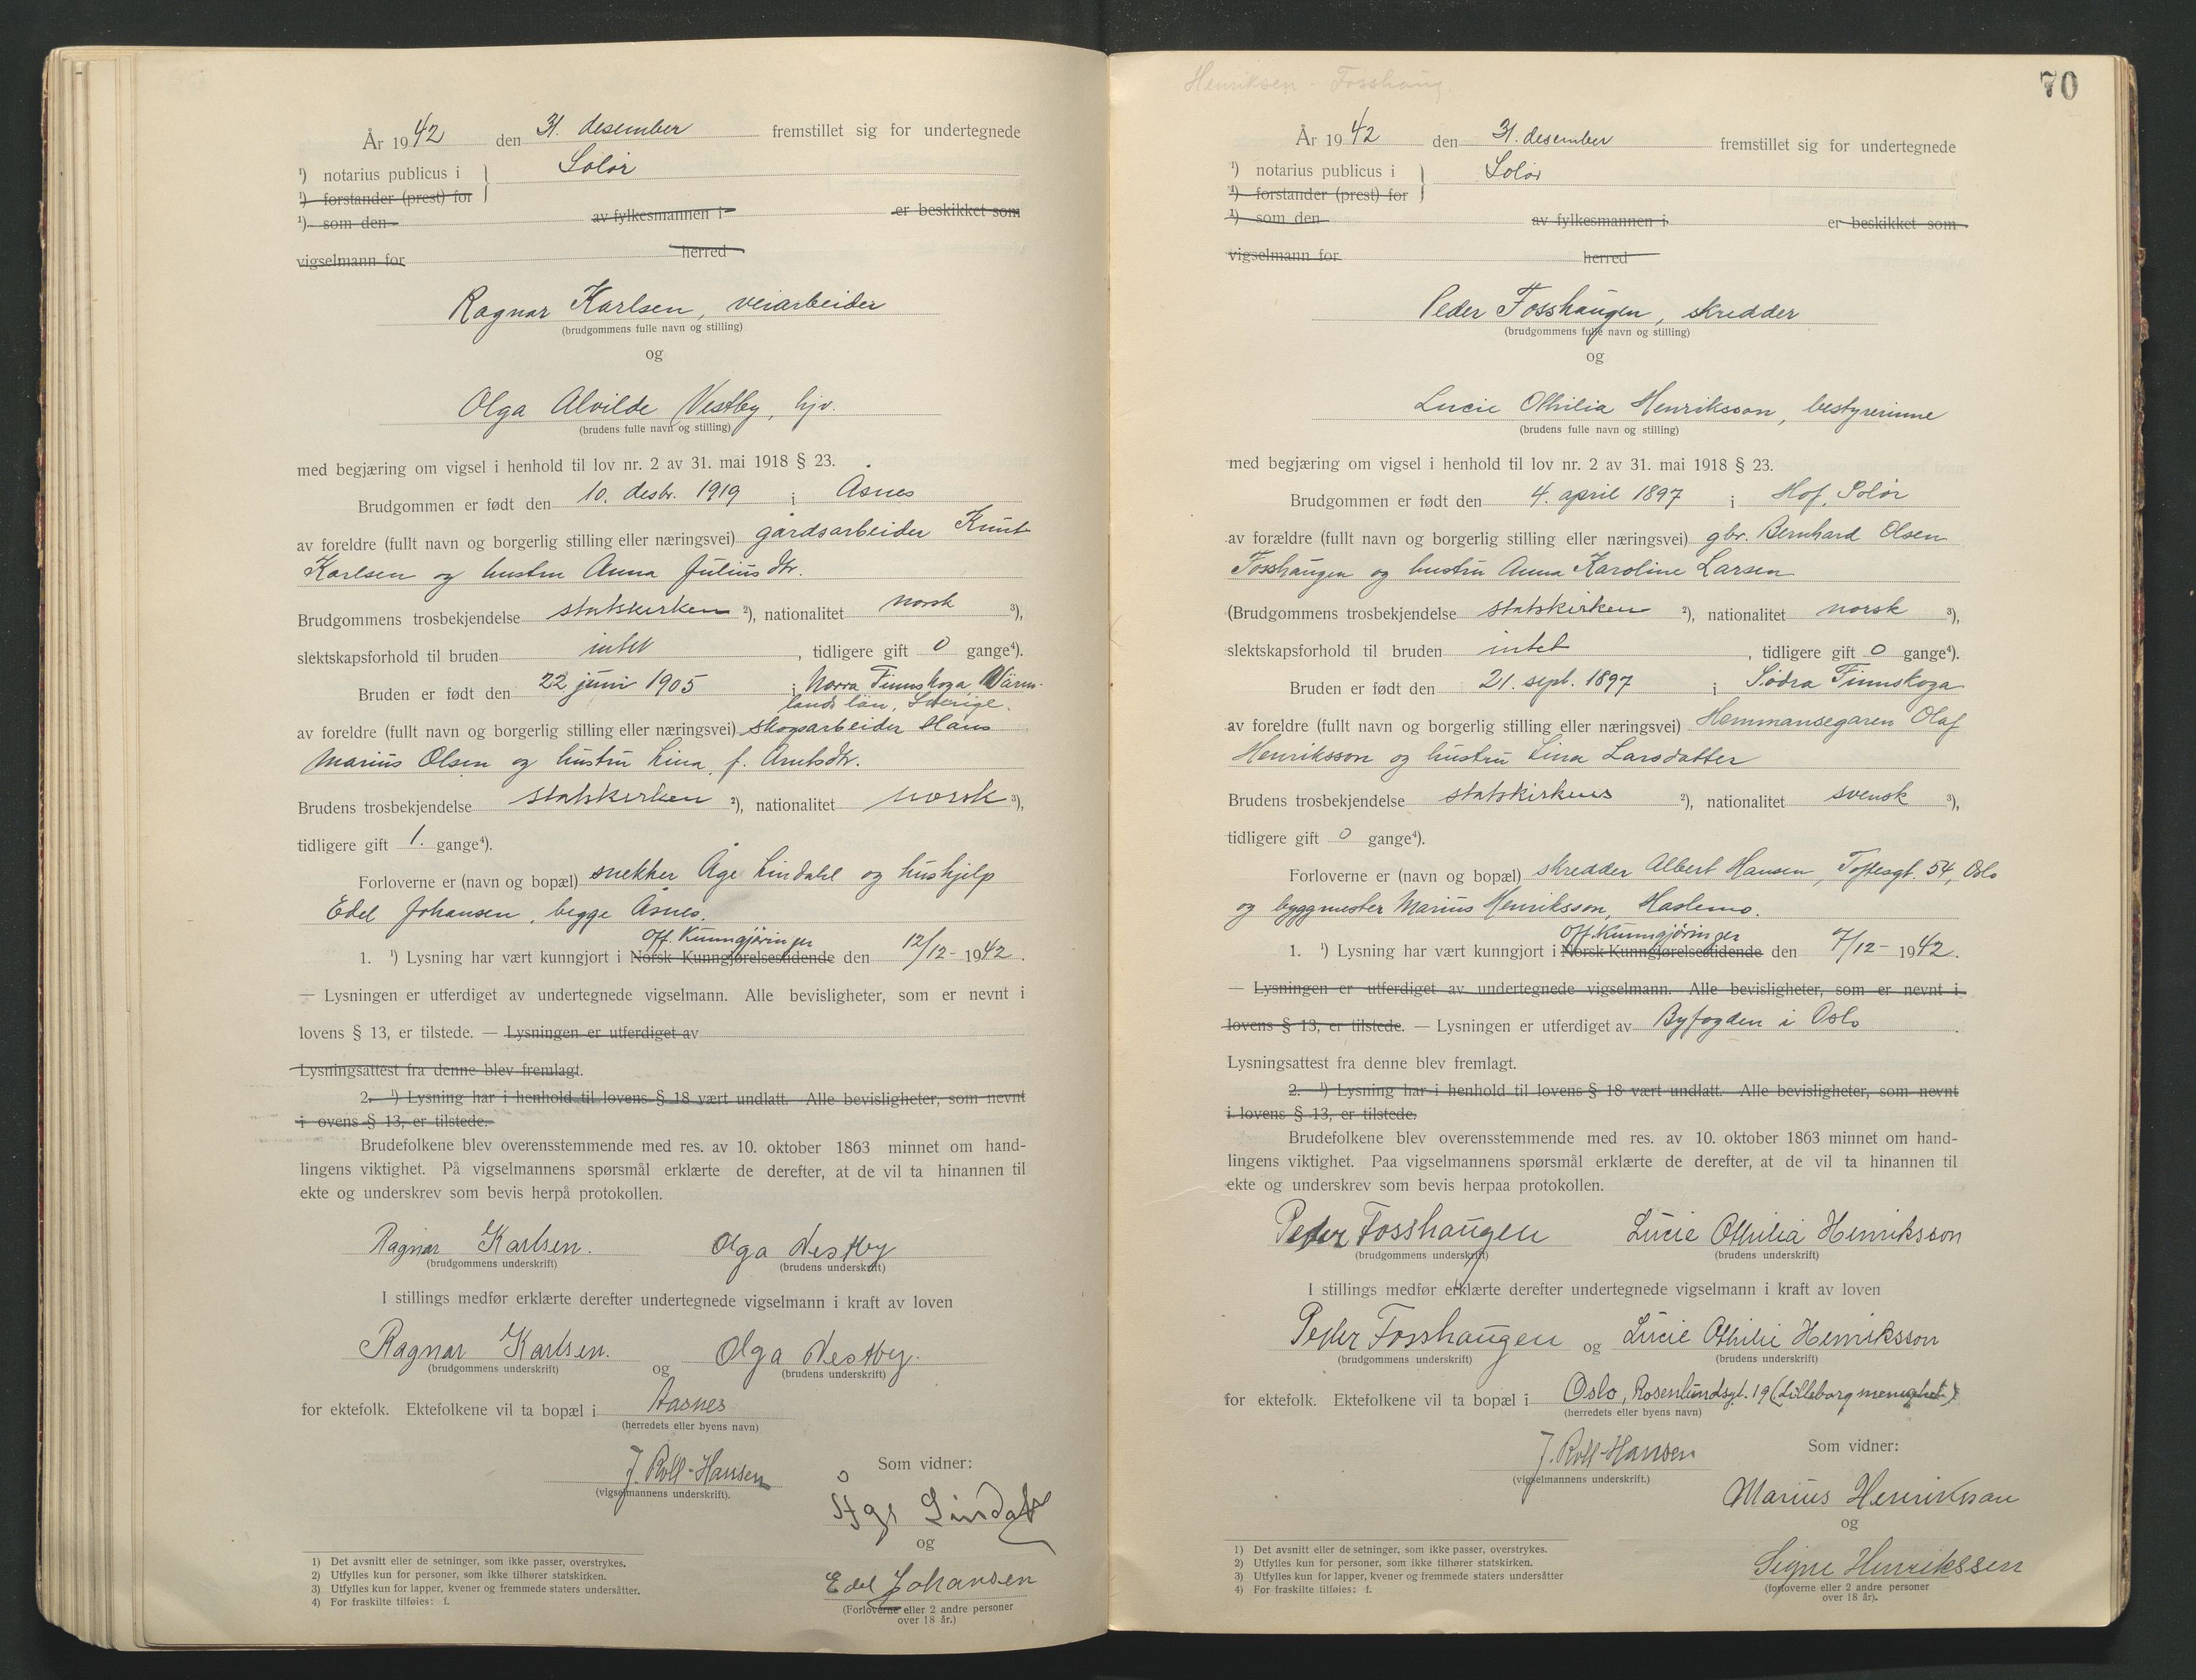 År 1942 den 31. desember fremstillet sig for undertegnede
¹) notarius publicus i Solør
¹) forstander (prest) for
¹) som den av fylkesmannen i er beskikket som
vigselmann for herred
Ragnar Karlsen, veiarbeider
(brudgommens fulle navn og stilling)
og
Olga Alvilde Vestby, hjv.
(brudens fulle navn og stilling)
med begjæring om vigsel i henhold til lov nr. 2 av 31. mai 1918 § 23.
Brudgommen er født den 10. desbr. 1919 i Åsnes
av foreldre (fullt navn og borgerlig stilling eller næringsvei) gårdsarbeider Knut
Karlsen og hustru Anna Juliusdtr.
Brudgommens trosbekjendelse statskirken ²), nationalitet norsk ³),
slektskapsforhold til bruden intet, tidligere gift 0 gange⁴).
Bruden er født den 22. juni 1905 i Norra Finnskoga, Värm-
lands län, Sverige.
av foreldre (fullt navn og borgerlig stilling eller næringsvei) skogsarbeider Hans
Marius Olsen og hustru Lina, f. Arntsdtr.
Brudens trosbekjendelse statskirken ²), nationalitet norsk ³),
tidligere gift 1. gange⁴).
Forloverne er (navn og bopæl) snekker Åge Lindahl og hushjelp
Edel Johansen, begge Åsnes.
Off. Kunngjøringer
1. ¹) Lysning har vært kunngjort i Norsk Kunngjørelsestidende den 12/12- 1942.
— Lysningen er utferdiget av undertegnede vigselmann. Alle bevisligheter, som er nevnt i
lovens § 13, er tilstede. — Lysningen er utferdiget av
Lysningsattest fra denne blev fremlagt.
2. ¹) Lysning har i henhold til lovens § 18 vært undlatt. Alle bevisligheter, som nevnt
i ovens § 13, er tilstede.
Brudefolkene blev overensstemmende med res. av 10. oktober 1863 minnet om hand-
lingens viktighet. På vigselmannens spørsmål erklærte de derefter, at de vil ta hinannen til
ekte og underskrev som bevis herpå protokollen.
Ragnar Karlsen. Olga Vestby
(brudgommens underskrift) (brudens underskrift)
I stillings medfør erklærte derefter undertegnede vigselmann i kraft av loven
Ragnar Karlsen. og Olga Vestby.
(brudgommens underskrift) (brudens underskrift)
for ektefolk. Ektefolkene vil ta bopæl i Aasnes
(herredets eller byens navn)
J. Roll-Hansen
(vigselmannens underskrift).
Som vidner:
Åge Lindahl
og
Edel Johansen
(Forloverne eller 2 andre personer
over 18 år.)
1) Det avsnitt eller de setninger, som ikke passer, overstrykes.
2) Utfylles kun for personer, som ikke tilhører statskirken.
3) Utfylles kun for lapper, kvener og fremmede staters undersåtter.
4) For fraskilte tilføies: f.
Henriksen - Fosshaug
70
År 1942 den 31. desember fremstillet sig for undertegnede
¹) notarius publicus i Solør
¹) forstander (prest) for
¹) som den av fylkesmannen i er beskikket som
vigselmann for herred
Peder Fosshaugen, skredder
(brudgommens fulle navn og stilling)
og
Lucie Othilia Henriksson, bestyrerinne
(brudens fulle navn og stilling)
med begjæring om vigsel i henhold til lov nr. 2 av 31. mai 1918 § 23.
Brudgommen er født den 4. april 1897 i Hof, Solør
av forældre (fullt navn og borgerlig stilling eller næringsvei) gbr. Bernhard Olsen
Fosshaugen og hustru Anna Karoline Larsen
(Brudgommens trosbekjendelse statskirken ²), nationalitet norsk ³),
slektskapsforhold til bruden intet, tidligere gift 0 gange⁴).
Bruden er født den 21. sept. 1897 i Södra Finnskoga
av foreldre (fullt navn og borgerlig stilling eller næringsvei) Hemmansegaren Olaf
Henriksson og hustru Lina Larsdatter
Brudens trosbekjendelse statskirkens ²), nationalitet svensk ³),
tidligere gift 0 gange⁴).
Forloverne er (navn og bopæl) skredder Albert Hansen, Toftesgt. 54, Oslo
og byggmester Marius Henriksson, Haslemo.
Off. Kunngjøringer
1. ¹) Lysning har vært kunngjort i Norsk Kunngjørelsestidende den 7/12- 1942.
— Lysningen er utferdiget av undertegnede vigselmann. Alle bevisligheter, som er nevnt i
lovens § 13, er tilstede. — Lysningen er utferdiget av Byfogden i Oslo.
Lysningsattest fra denne blev fremlagt.
2. ¹) Lysning har i henhold til lovens § 18 vært undlatt. Alle bevisligheter, som nevnt
i lovens § 13, er tilstede.
Brudefolkene blev overensstemmende med res. av 10. oktober 1863 minnet om hand-
lingens viktighet. Paa vigselmannens spørsmål erklærte de derefter, at de vil ta hinannen til
ekte og underskrev som bevis herpaa protokollen.
Peder Fosshaugen Lucie Othilia Henriksson
(brudgommens underskrift) (brudens underskrift)
I stillings medfør erklærte derefter undertegnede vigselmann i kraft av loven
Peder Fosshaugen og Lucie Othilie Henriksson
(brudgommens underskrift) (brudens underskrift)
for ektefolk. Ektefolkene vil ta bopæl i Oslo, Rosenlundsgt. 19 (Lilleborg menighet)
(herredets eller byens navn)
J. Roll-Hansen
(vigselmannens underskrift.)
Som vidner:
Marius Henriksson
og
Signe Henrikssen
(forloverne eller 2 andre personer
over 18 år).
1) Det avsnitt eller de setninger, som ikke passer, overstrykes.
2) Utfylles kun for personer, som ikke tilhører statskirken.
3) Utfylles kun for lapper, kvener og fremmede staters undersåtter
4) For fraskilte tilføies: f.